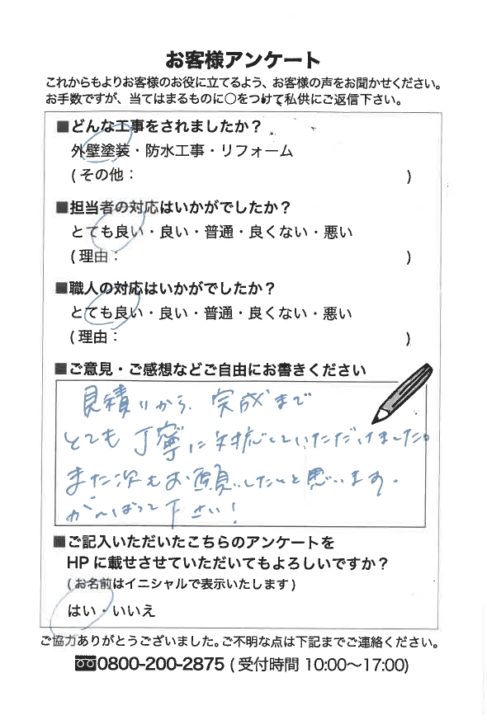 お客様アンケート
これからもよりお客様のお役に立てるよう、お客様の声をお聞かせください。
お手数ですが、当てはまるものに○をつけて私供にご返信下さい。
■どんな工事をされましたか？
外壁塗装・防水工事・リフォーム
(その他： )
■担当者の対応はいかがでしたか？
とても良い・良い・普通・良くない・悪い
(理由： )
■職人の対応はいかがでしたか？
とても良い・良い・普通・良くない・悪い
(理由： )
■ご意見・ご感想などご自由にお書きください
見積りから、完成まで
とても丁寧に対応していただけました。
また次もお願いしたいと思います。
がんばって下さい！
■ご記入いただいたこちらのアンケートを
HPに載せさせていただいてもよろしいですか？
(お名前はイニシャルで表示いたします)
はい・いいえ
ご協力ありがとうございました。ご不明な点は下記までご連絡ください。
0800-200-2875 (受付時間 10:00〜17:00)